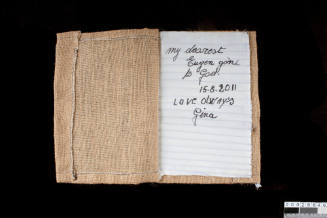 my dearest
Eugen gone
to God
15-8-2011
Love always
Gina